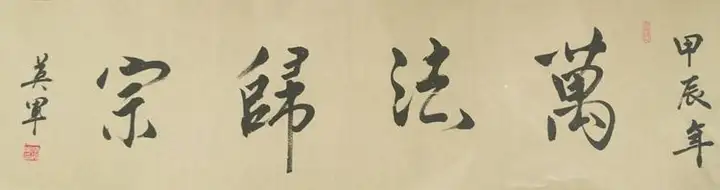 甲辰年
萬法歸宗
英軍